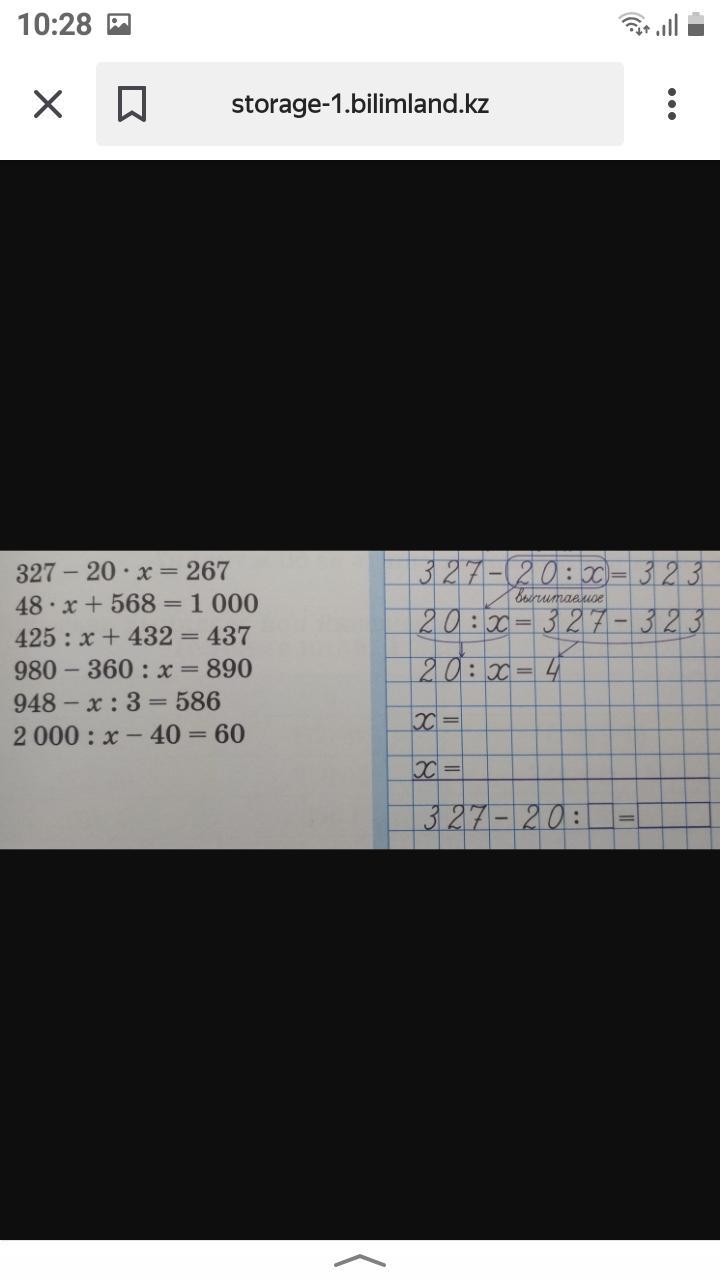 10:28
storage-1.bilimland.kz
327 – 20 · x = 267
48 · x + 568 = 1 000
425 : x + 432 = 437
980 – 360 : x = 890
948 – x : 3 = 586
2 000 : x – 40 = 60
327 – 20 : x = 323
вычитаемое
20 : x = 327 – 323
20 : x = 4
x =
x =
327 – 20 : □ = □